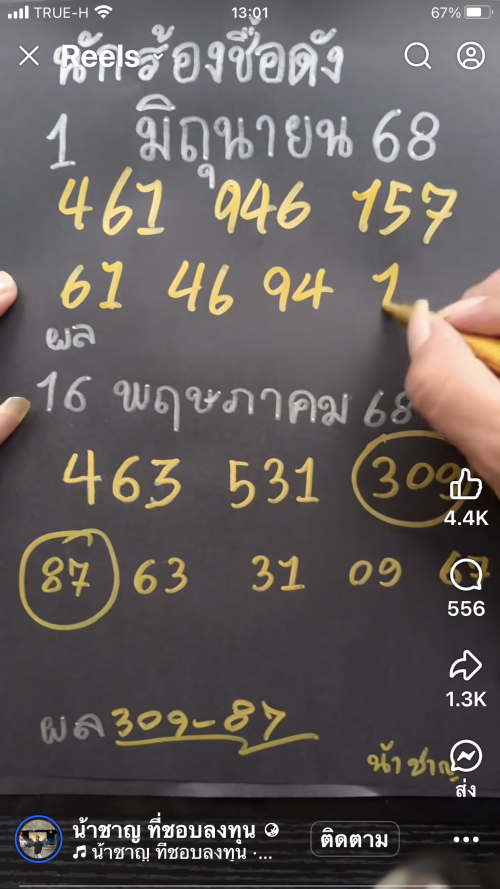 TRUE-H 13:01 67%
นักร้องชื่อดัง
Reels
1 มิถุนายน 68
461 946 157
61 46 94 1
ผล
16 พฤษภาคม 68
463 531 309
4.4K
87 63 31 09 67
556
1.3K
ผล 309-87
น้าชาญ
ส่ง
น้าชาญ ที่ชอบลงทุน
ติดตาม
น้าชาญ ที่ชอบลงทุน ·...